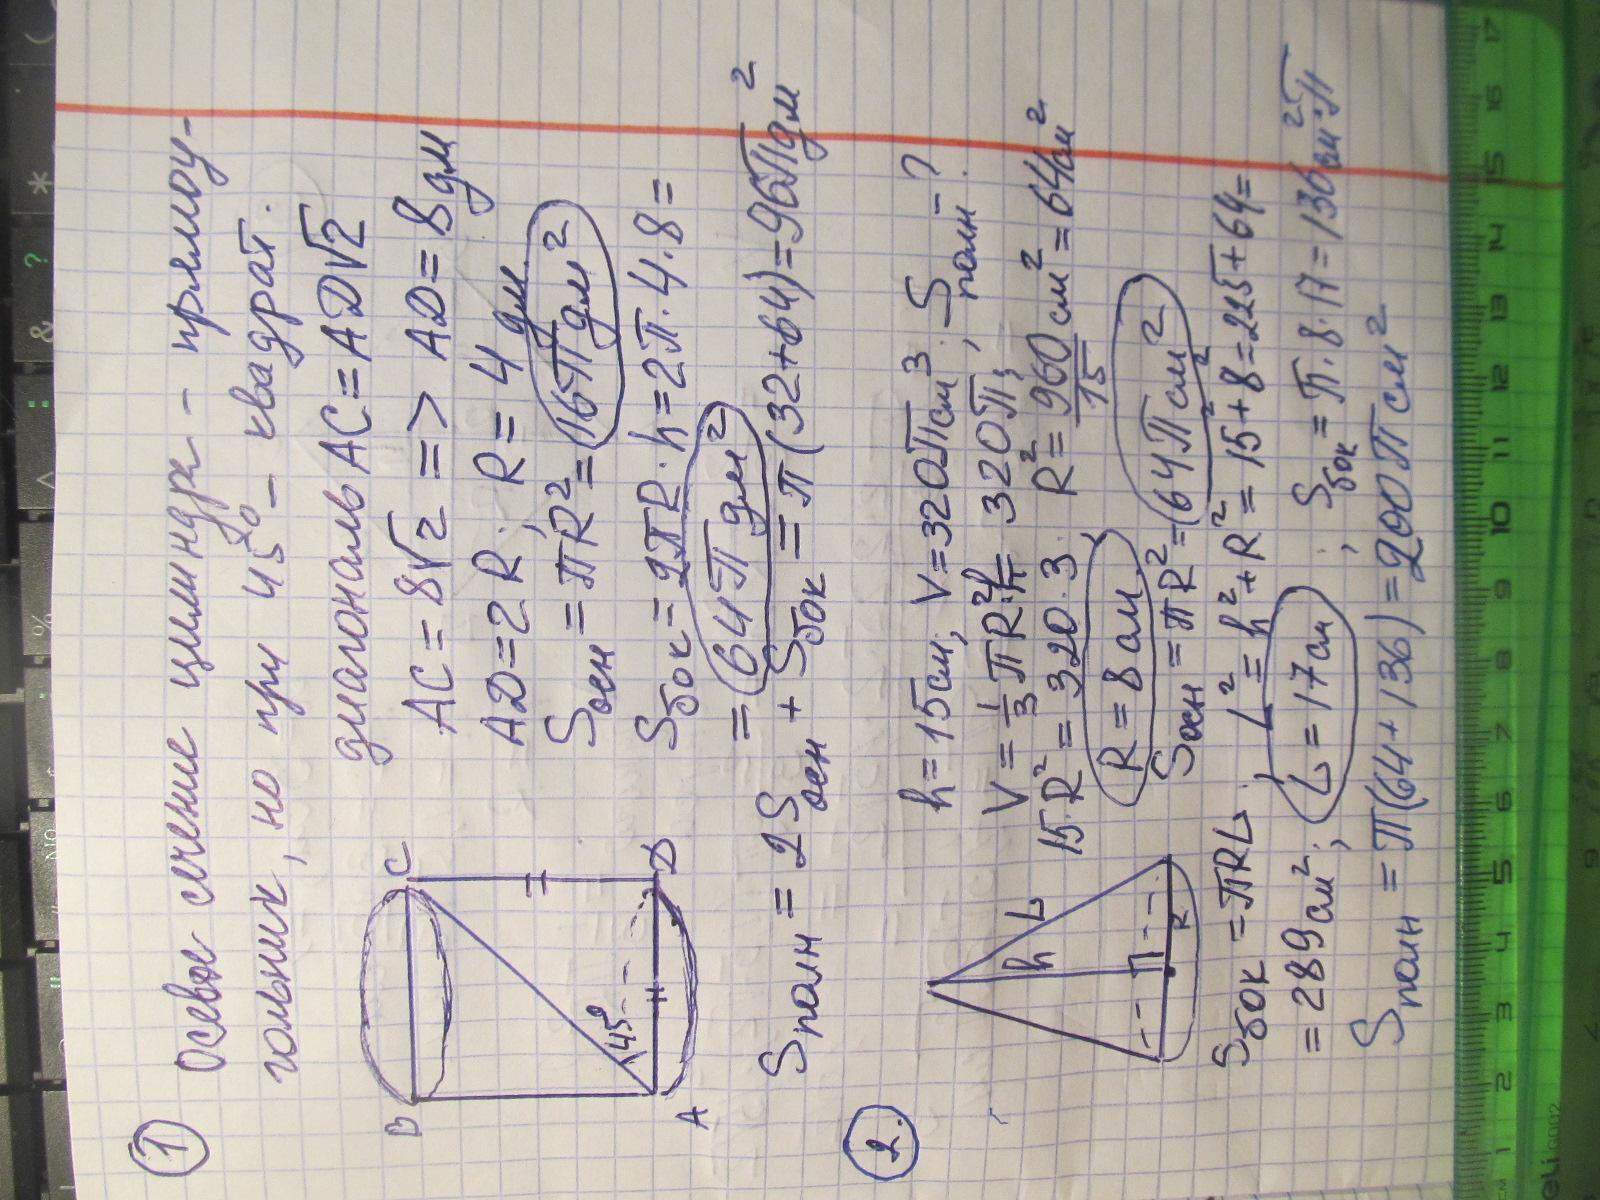 1
Осевое сечение цилиндра - прямоу-
гольник, но при 45° - квадрат.
диагональ AC=AD√2
AC=8√2 => AD=8дм
AD=2R; R=4дм.
Sосн=πR²=16πдм²
Sбок=2πR·h=2π·4·8=
=64πдм²
Sполн=2Sосн+Sбок=π(32+64)=96πдм²
B C
45°
A D
2.
h=15см, V=320πсм³. Sполн-?
V=1/3πR²·h=320π;
15·R²=320·3; R²=960/15см²=64см²
R=8см
Sосн=πR²=64πсм²
h L
R
Sбок=πRL. L²=h²+R²=15²+8²=225+64=
=289см²; L=17см; Sбок=π·8·17=136см²π
Sполн=π(64+136)=200πсм²
1 2 3 4 5 6 7 8 9 10 11 12 13 14 15 16 17
% ^ & *